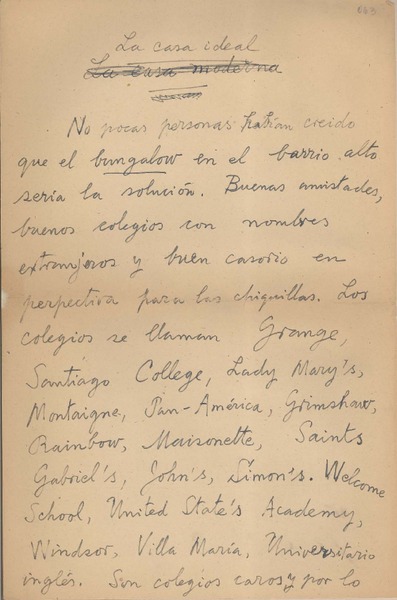 663
La casa ideal
La casa moderna
No pocas personas habían creido
que el bungalow en el barrio alto
sería la solución. Buenas amistades,
buenos colegios con nombres
extranjeros y buen casorio en
perpectiva para las chiquillas. Los
colegios se llaman Grange,
Santiago College, Lady Mary's,
Montaigne, Pan-América, Grimshaw,
Rainbow, Maisonette, Saints
Gabriel's, John's, Simon's. Welcome
School, United State's Academy,
Windsor, Villa María, Universitario
inglés. Son colegios caros y por lo